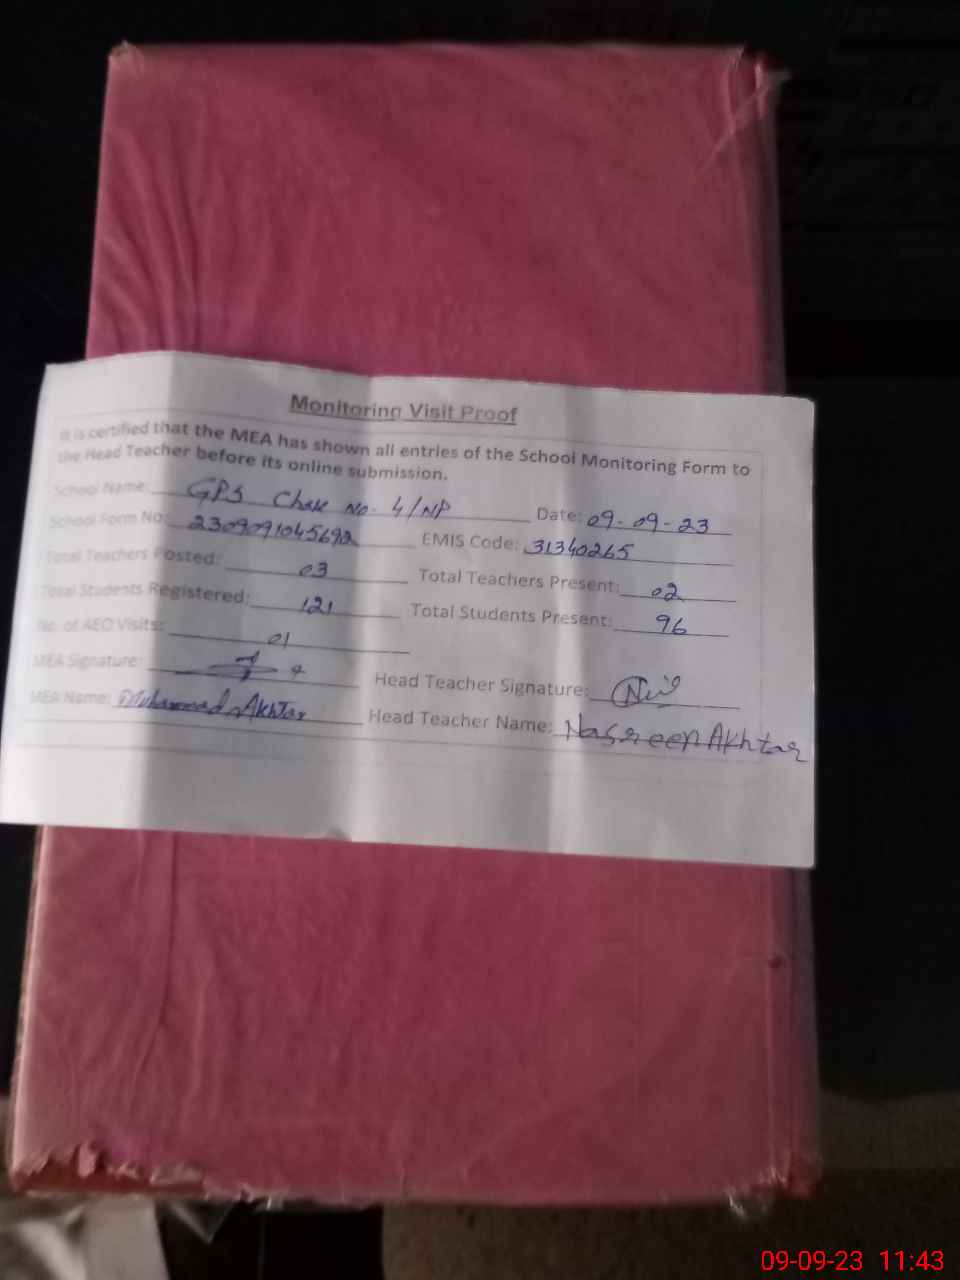 Monitoring Visit Proof
It is certified that the MEA has shown all entries of the School Monitoring Form to
the Head Teacher before its online submission.
School Name: GPS Chak No. 4/NP Date: 09-09-23
School Form No: 2309091045692 EMIS Code: 31340265
Total Teachers Posted: 03 Total Teachers Present: 02
Total Students Registered: 121 Total Students Present: 96
No. of AEO Visits: 01
MEA Signature: Head Teacher Signature:
MEA Name: Muhammad Akhtar Head Teacher Name: Nasreen Akhtar
09-09-23 11:43